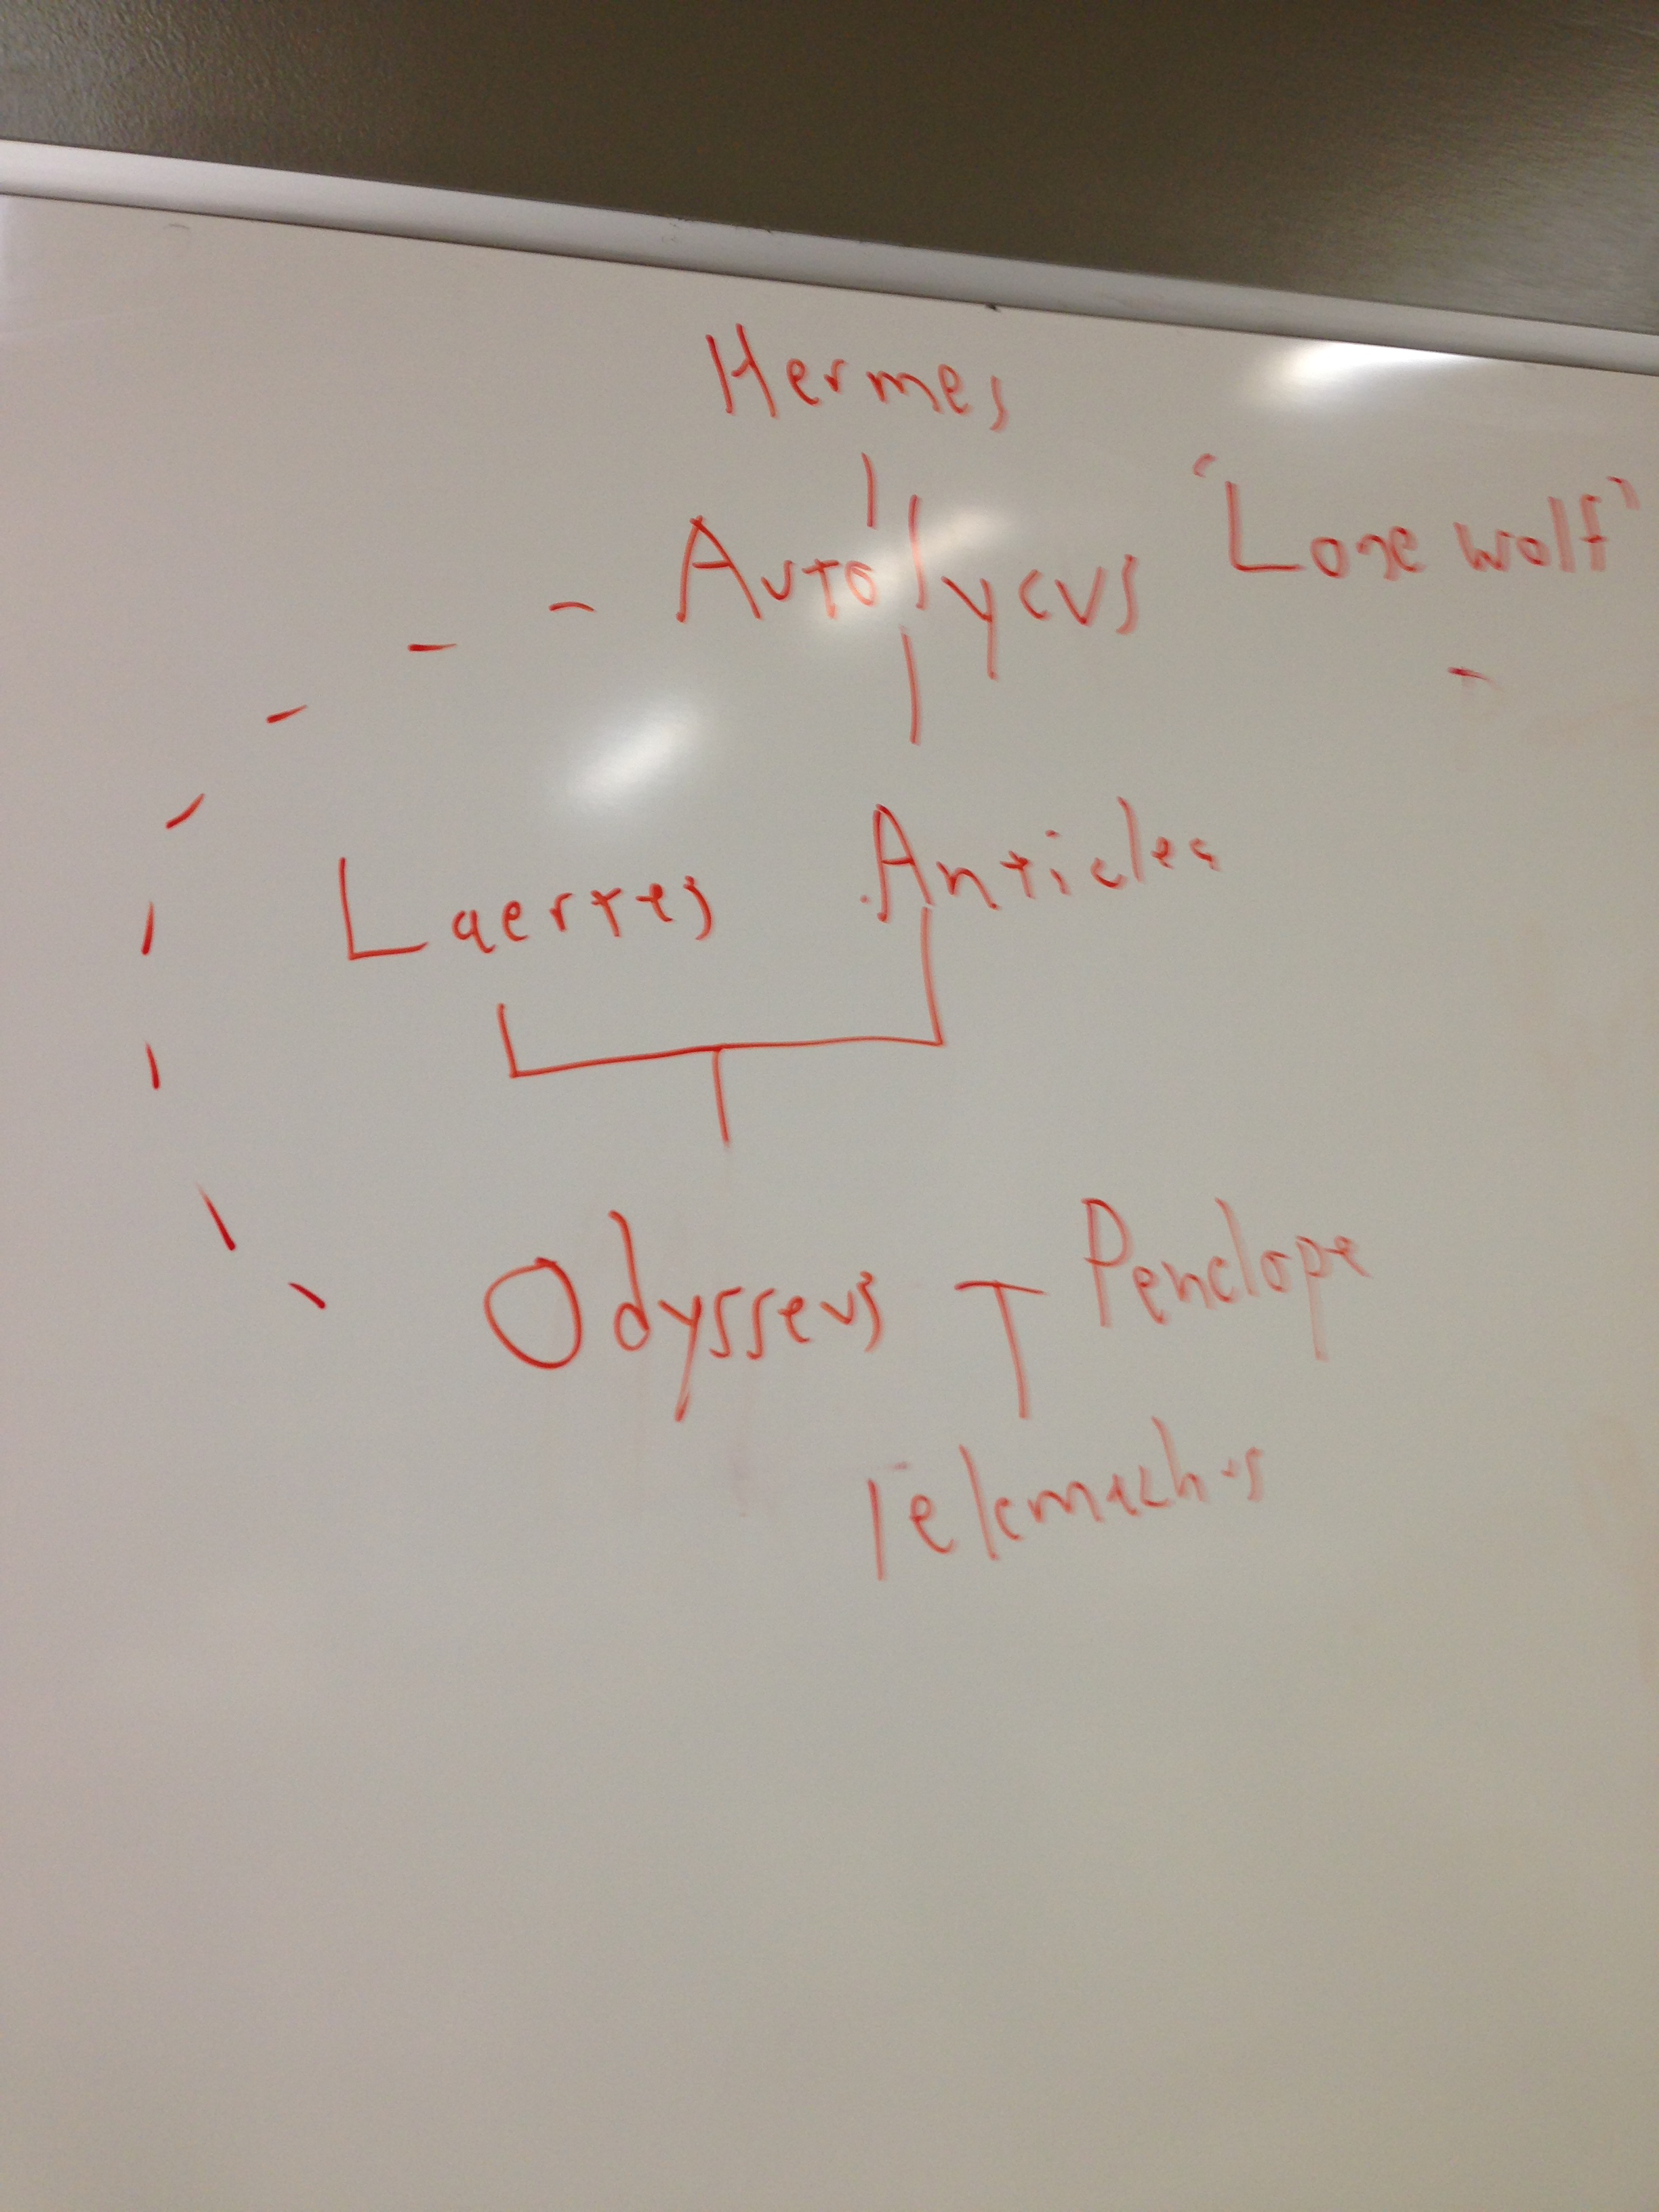 Hermes
Autolycus "Lone wolf"
Laertes Anticlea
Odysseus Penelope
Telemachus